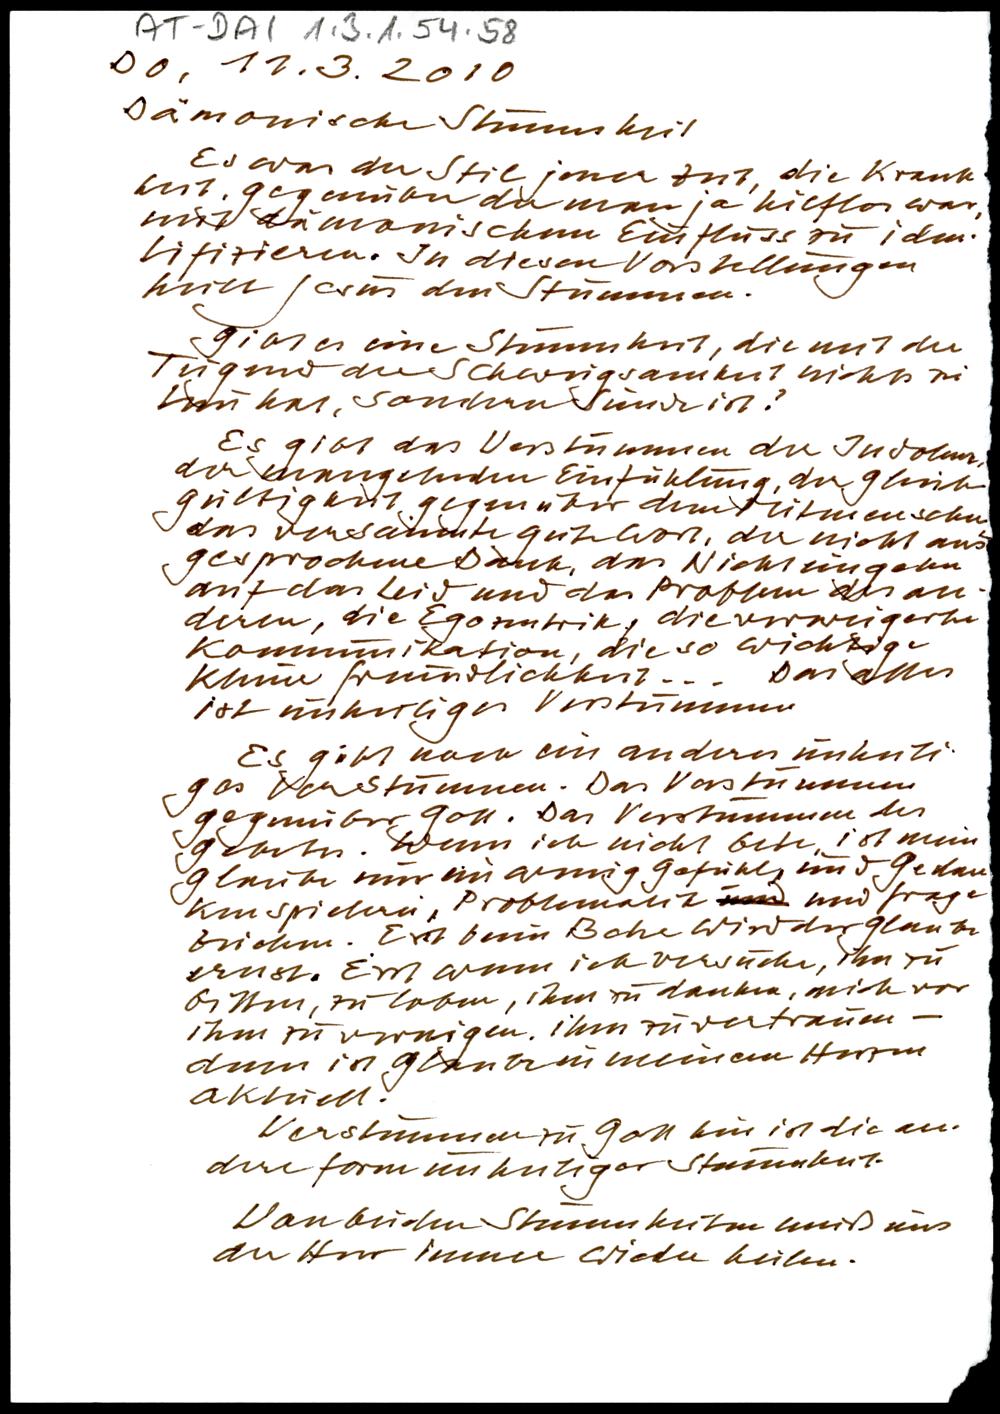 AT-DAI 1.3.1.54.58
Do, 11.3.2010
Dämonische Stummheit
Es war der Stil jener Zeit, die Krank-
heit, gegenüber der man ja hilflos war,
mit dämonischem Einfluss zu iden-
tifizieren. In diesen Vorstellungen
heilt Jesus den Stummen.
Gibt es eine Stummheit, die mit der
Tugend der Schweigsamkeit nichts zu
tun hat, sondern Sünde ist?
Es gibt das Verstummen der Indolenz,
der mangelnden Einfühlung, der Gleich-
gültigkeit gegenüber dem Mitmenschen,
das versäumte gute Wort, der nicht aus-
gesprochene Dank, das Nichteingehen
auf das Leid und das Problem des an-
deren, die Egozentrik, die verweigerte
Kommunikation, die so wichtige
kleine Freundlichkeit... Das alles
ist unheiliges Verstummen
Es gibt noch ein anderes unheili-
ges Verstummen. Das Verstummen
gegenüber Gott. Das Verstummen des
Gebetes. Wenn ich nicht bete, ist mein
Glaube nur ein wenig Gefühl, und Gedan-
kenspielerei, Problematik und und Frage-
zeichen. Erst beim Bete wird der Glaube
ernst. Erst wenn ich versuche, ihn zu
bitten, zu loben, ihm zu danken, mich vor
ihm zu verneigen, ihm zu vertrauen –
dann ist Glaube in meinem Herzen
aktuell.
Verstummen zu Gott hin ist die an-
dere Form unheiliger Stummheit.
Von beiden Stummheiten muß uns
der Herr immer wieder heilen.